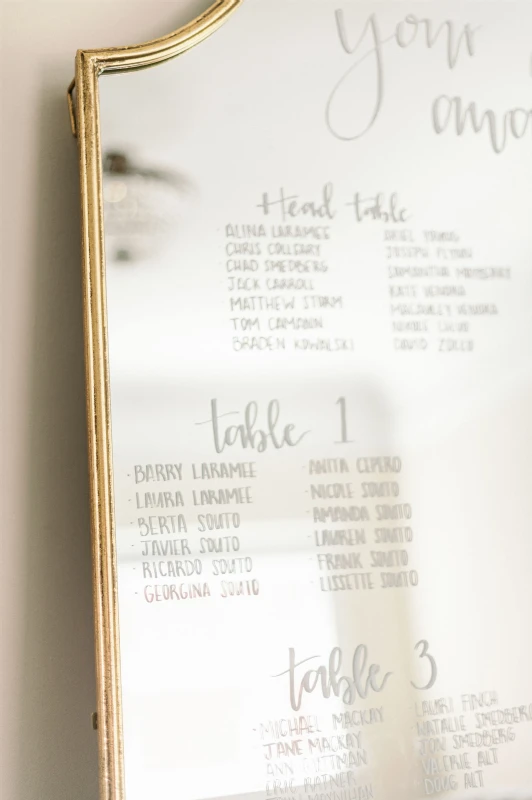 your
Head table
ALINA LARAMEE
CHRIS COLLSARY
CHAD SMEDBERG
JACK CARROLL
MATTHEW STORM
TOM CAMANN
BRADEN KOWALSKI
ARIEL YOUNG
JOSEPH FLYNN
SAMANTHA
KATE VENDRA
MACAULEY VENDRA
NICOLE
DAVID
table 1
· BARRY LARAMEE
· LAURA LARAMEE
· BERTA SOUTO
· JAVIER SOUTO
· RICARDO SOUTO
· GEORGINA SOUTO
· ANITA CEPERO
· NICOLE SOUTO
· AMANDA SOUTO
· LAUREN SOUTO
· FRANK SOUTO
· LISSETTE SOUTO
table 3
· MICHAEL MACKAY
JANE MACKAY
ANN
ERIC RATNER
· LAURI FINCH
· NATALIE SMEDBERG
· JON SMEDBERG
· VALERIE ALT
· DOUG ALT